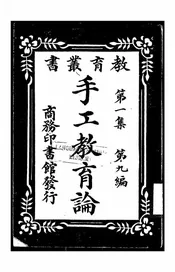 教育叢書
第一集 第九編
手工教育論
商務印書館發行